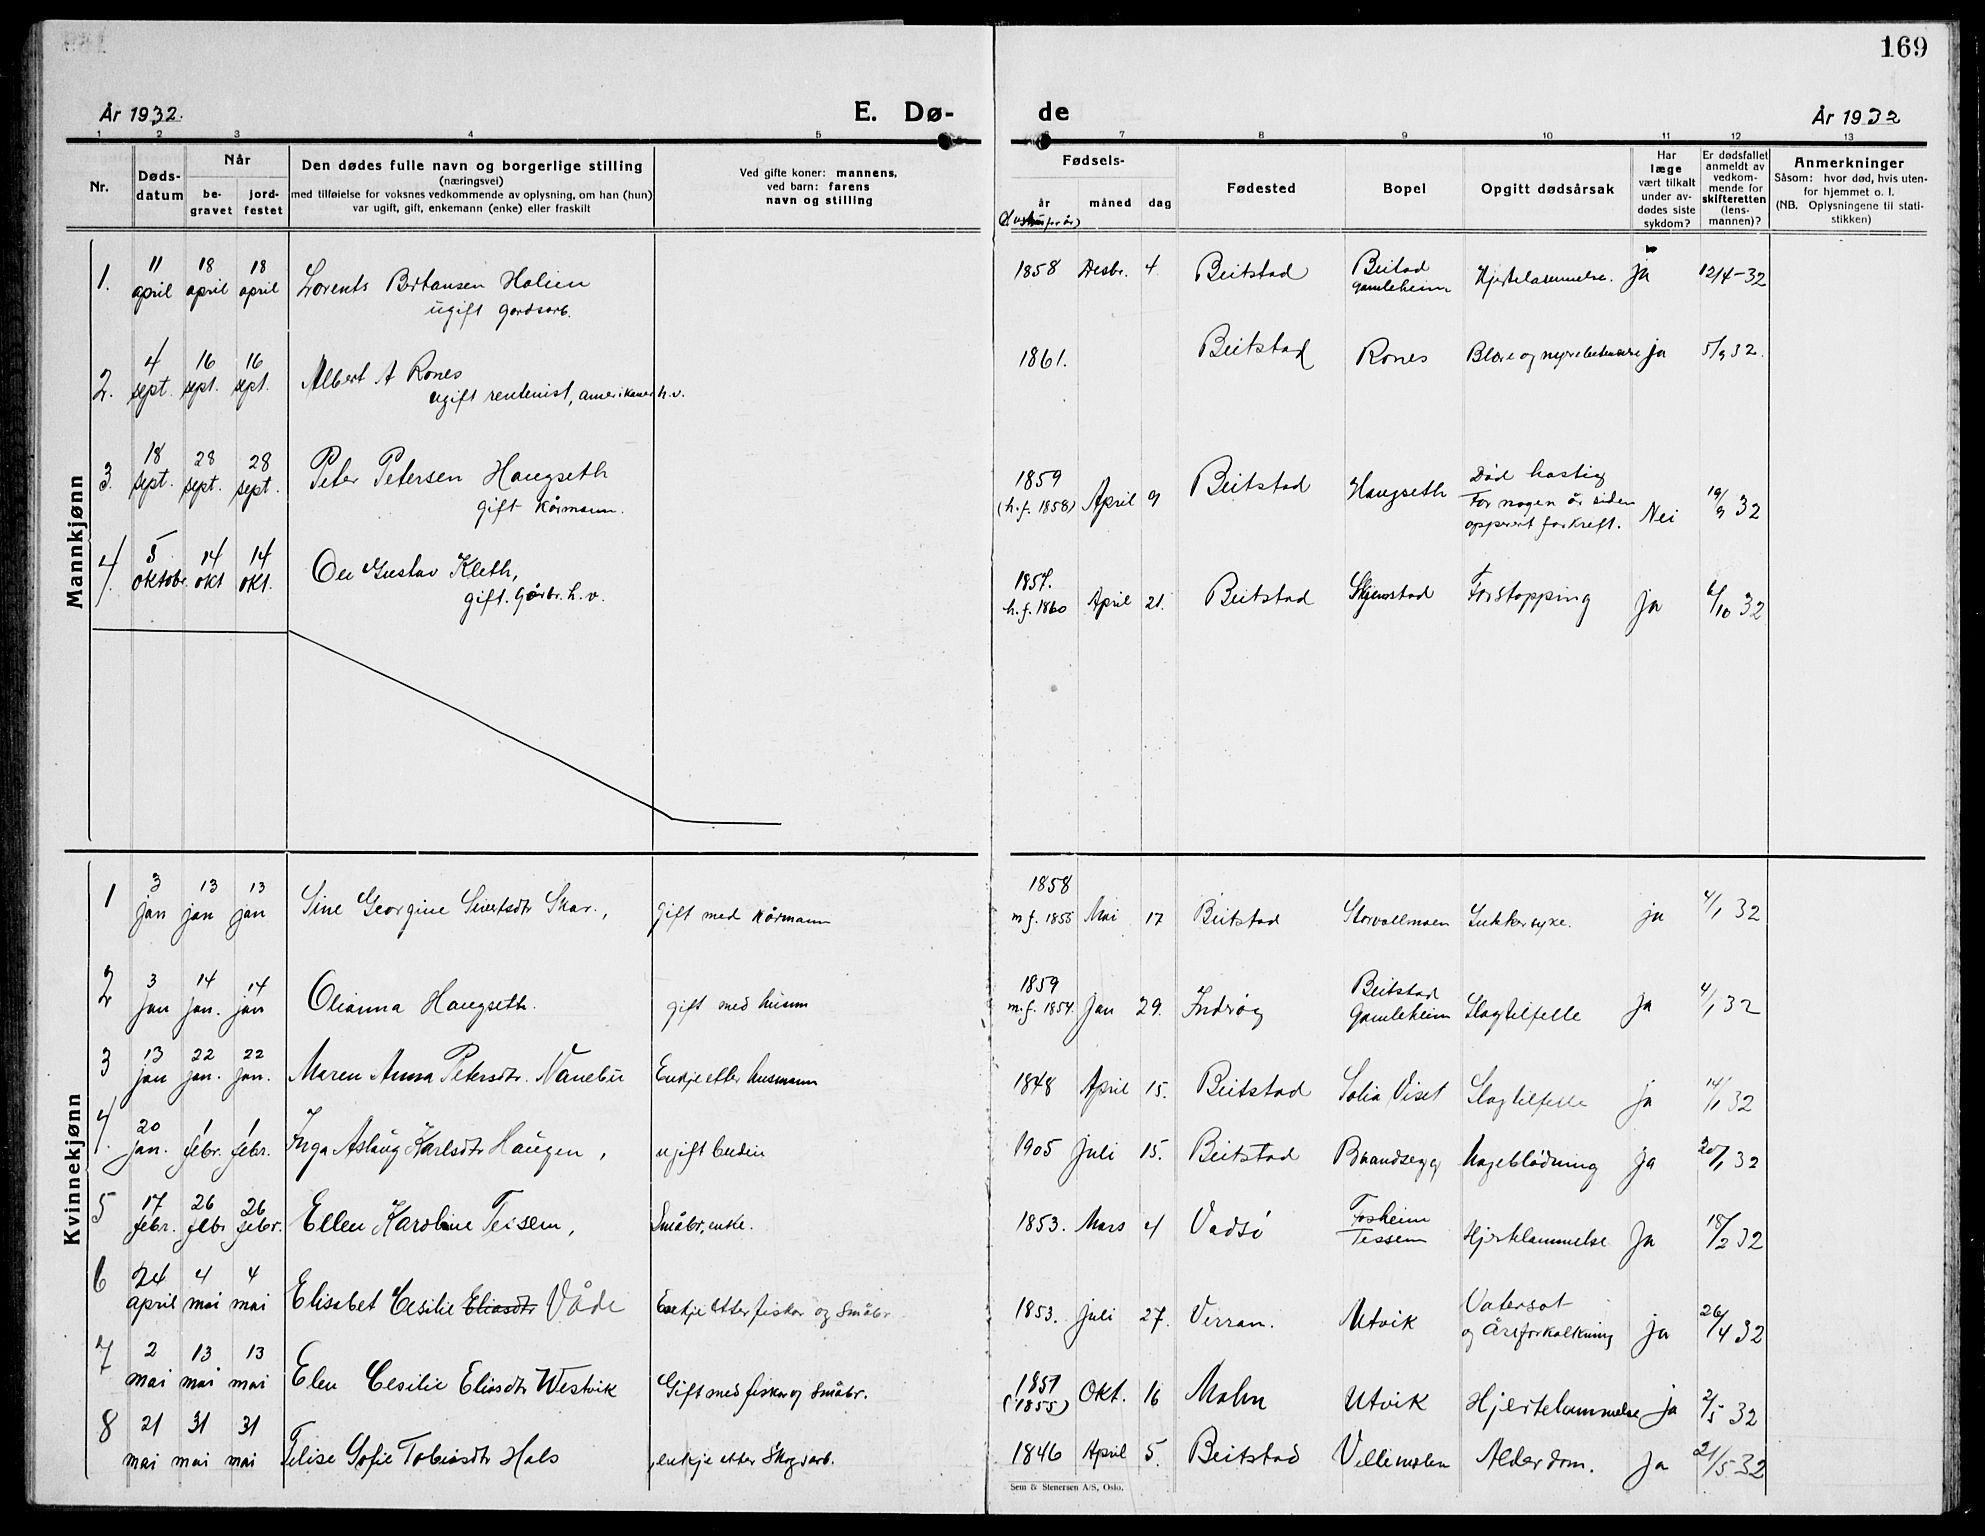 169
År 1932. E. Dø- de År 1932
1 2 3 4 5 6 7 8 9 10 11 12 13
Nr. Døds-datum Når be-gravet jord-festet
Den dødes fulle navn og borgerlige stilling
(næringsvei)
med tilføielse for voksnes vedkommende av oplysning, om han (hun)
var ugift, gift, enkemann (enke) eller fraskilt
Ved gifte koner: mannens,
ved barn: farens
navn og stilling
Fødsels-
år måned dag
Fødested Bopel Opgitt dødsårsak
Har læge vært tilkalt under av-dødes siste sykdom?
Er dødsfallet anmeldt av vedkom-mende for skifteretten (lens-mannen)?
Anmerkninger
Såsom: hvor død, hvis uten-
for hjemmet o. l.
(NB. Oplysningene til stati-
stikken)
Mannkjønn
1. 11 april 18 april 18 april Lorents Bertausen Holien ugift gardsarb. 1858 Desbr. 4. Beitstad Beitad Gamleheim Hjertelammelse. ja 12/4-32
2. 4 sept. 16 sept. 16 sept. Albert A Rones ugift rentenist, amerikaner h.v. 1861. Beitstad Rones Blære og ja 5/9 32.
3. 18 sept. 28 sept. 28 sept. Peter Petersen Haugseth gift kårmann. 1859 (h.f. 1858) April 9 Beitstad Haugseth Død hastig For nogen år siden opperert for kreft. Nei 19/9 32
4. 5 oktobr. 14 okt 14 okt. Ole Gustav Kleth, gift. gårbr. h.v. 1857. h.f. 1860 April 21. Beitstad Skjevstad Forstopping ja 6/10 32
Kvinnekjønn
1 3 jan 13 jan 13 jan Sine Georgine Sivertsdtr Skar., gift med kårmann 1858 m.f. 1856 Mai 17 Beitstad Storvollmoen Sukkersyke. ja 4/1 32
2 3 jan 14 jan. 14 jan Olianna Haugseth. gift med husm 1859 m.f. 1854. Jan 29. Inderøy Beitstad Gamleheim Slagtilfelle ja 4/1 32
3 13 jan 22 jan. 22 jan. Maren Anna Petersdtr. Nånebu Enkje etter husmann 1848 April 15. Beitstad Solia Viset Slagtilfelle ja 14/1 32
4. 20 jan. 1 febr. 1 febr. Inga Aslaug Karlsdtr Haugen, ugift budeie 1905 juli 15. Beitstad Brandsegg Mageblödning ja 20/1 32
5 17 febr. 26 febr 26 febr. Ellen Karoline Teisem, Småbr, enke. 1853. Mars 4 Vadsö Fosheim Tessem Hjertelammelse Ja 18/2 32
6 24 april 4 mai 4 mai Elisabet Cesilie Eliasdtr Våde Enkje etter fisker og Småbr 1853. juli 27. Verran. Utvik Vatersot og Åreforkalkning ja 26/4 32
7 2 mai 13 mai 13 mai Elen Cesilie Eliasdtr Westvik Gift med fisker og Småbr. 1857 (1855) Okt. 16 Malm Utvik Hjertelammelse ja 2/5 32
8 21 mai 31 mai 31 mai Telise Sofie Tobiasdtr Hals , enkje etter Skogsarb. 1846 April 5. Beitstad Vellimelen Alderdom. Ja 21/5 32
Sem & Stenersen A/S, Oslo.